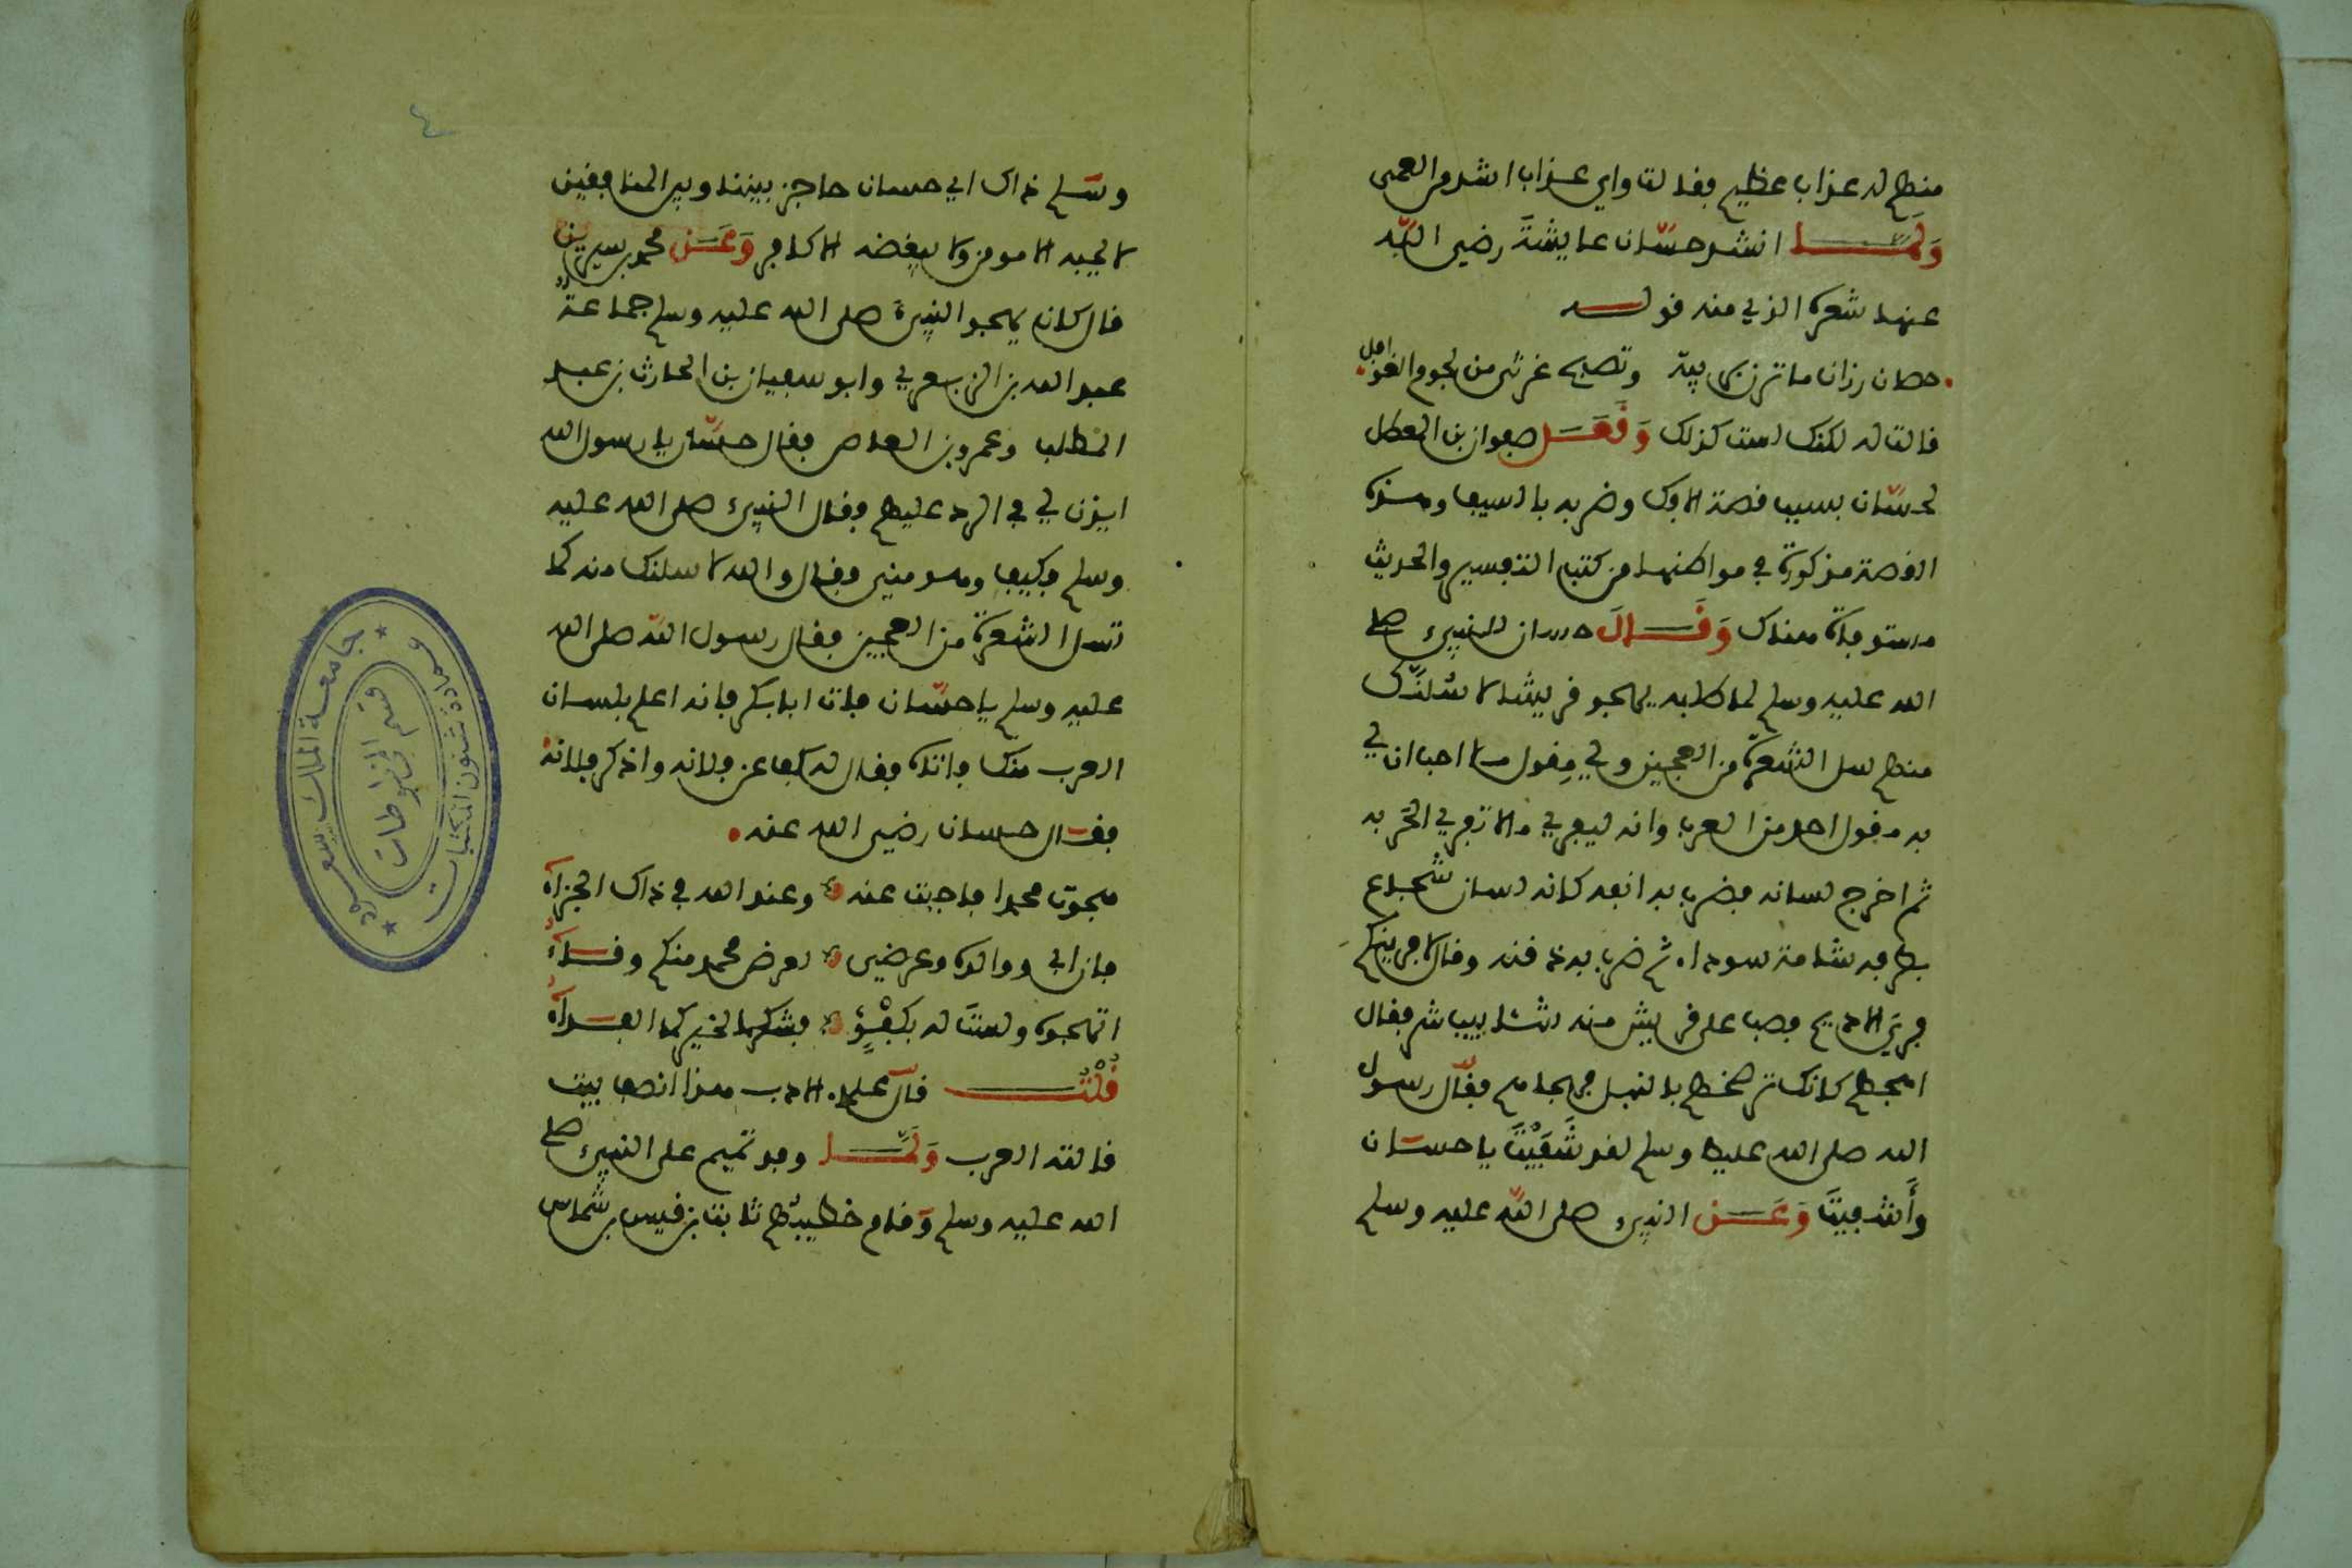 منهم له عذاب عظيم فقالت واي عذاب اشد من العمى
وَلَمَّا انشد حسّان عايشةَ رضي اللّه
عنها شعره الذي منه قوله
حصان رزان ما تزن بريبة وتصبح غرثى من لحوم الغوافل
قالت له لكنك لست كذلك وَقَعَدَ صفوان بن المعطل
لحسّان بسبب قصة الافك وضربه بالسيف وهذه
القصة مذكورة في مواطنها من كتب التفسير والحديث
مستوفاة هناك وَقَالَ حسان للنبيء صلى
الله عليه وسلم لما طلبه يهجو قريشا لاسُلنَّك
منهم سل الشعرة من العجين ولي مِقول ما احب ان لي
به مقول احد من العرب وانه ليفري ما لا تفري الحَربه
ثم اخرج لسانه فضرب به انفه كانه لسان شجاع
بطرفه شامة سوداء ثم ضرب به ذقنه وقال لافرينكم
فريَ الاديم فصب على قريش منه شئابيب شر فقال
اهجهم كانك تنضحهم بالنبل فهجاهم فقال رسول
الله صلى الله عليه وسلم لقد شَفَيْتَ يا حسّان
وأَشْفيتَ وَعَن النبيء صلى اللّه عليه وسلم
٤
وسلّم ذاك ابي حسان حاجز بيننا وبين المنافقين
لا يحبه الا مومن ولا يبغضه الا كافر وَعَن محمد بن سيرين
قال كان يهجو النبيءَ صلى الله عليه وسلم جماعةٌ
عبد الله بن الزبعرى وابو سفيان بن الحارث بن عبد
المطلب وعمرو بن العاص فقال حسّان يا رسول الله
ايذن لي في الرد عليهم فقال النبيء صلى الله عليه
وسلم فكيف وهو مني فقال والله لاسلنك منه كما
تسل الشعرة من العجين فقال رسول اللّه صلى الله
عليه وسلم يا حسّان فات ابا بكر فانه اعلم بلسان
العرب منك فاتاه فقال له كف عن فلانه واذكر فلانة
فقال حسان رضي الله عنه
هجوت محمدا فاجبت عنه وعند الله في ذاك الجزآءُ
فان ابي ووالده وعرضي لعرض محمد منكم وقآءُ
اتهجوه ولستَ له بكفْؤٍ فشركما لخيركما الفدآءُ
قُلْتُ قال علماء الادب هذا انصف بيت
قالته العرب وَلَمَّا وفد تميم على النبيء صلى
الله عليه وسلم وَقام خطيبهم ثابت بن قيس بن شماس
جامعة الملك سعود
عمادة شئون المكتبات
قسم المخطوطات